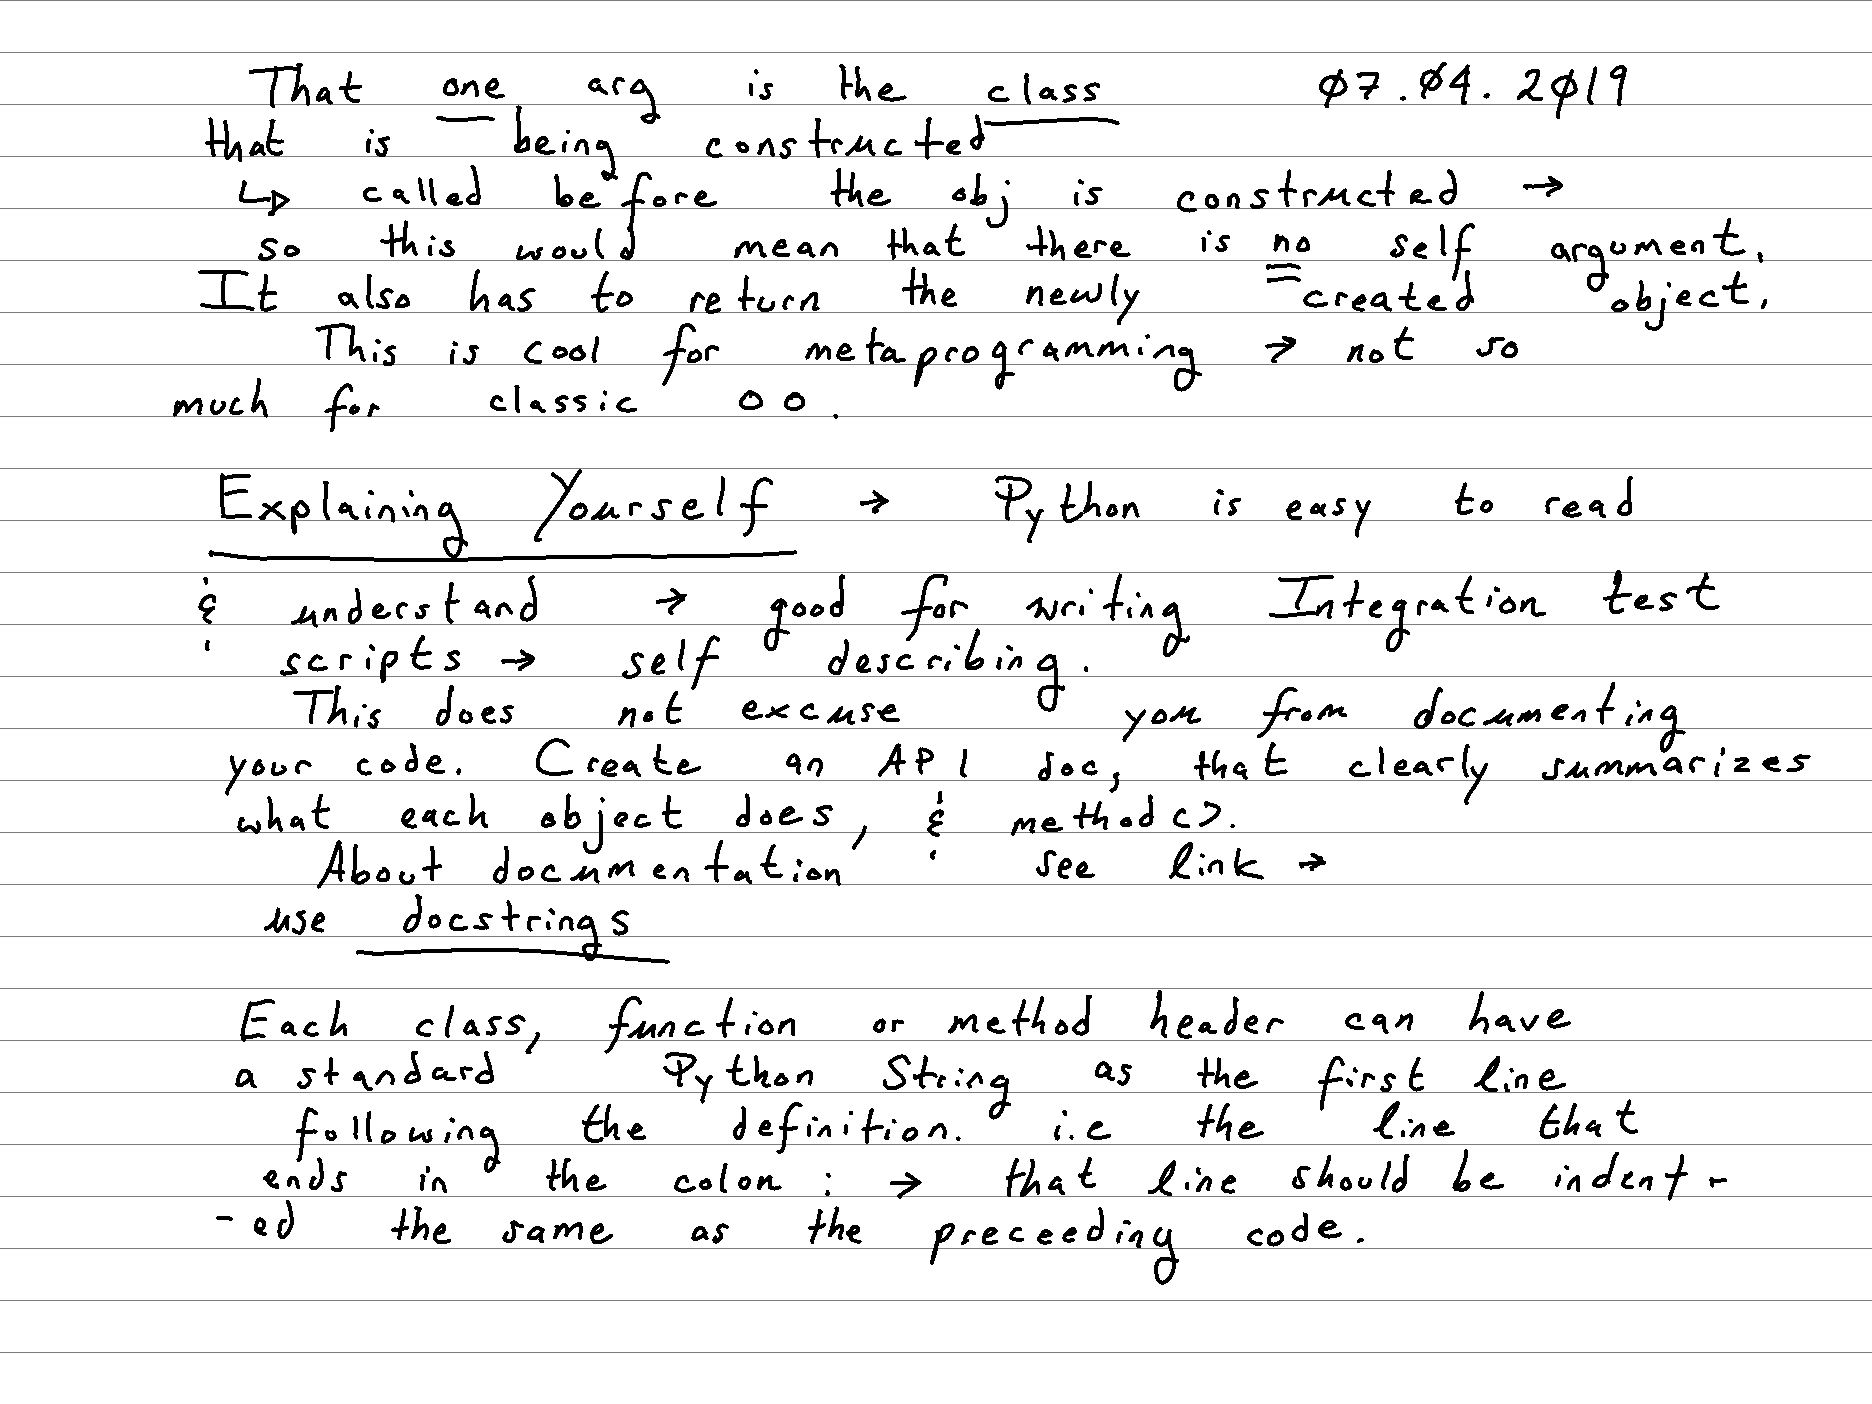 That one arg is the class 07.04.2019
that is being constructed
↳ called before the obj is constructed →
so this would mean that there is no self argument.
It also has to return the newly created object.
This is cool for metaprogramming → not so
much for classic OO.
Explaining Yourself → Python is easy to read
& understand → good for writing Integration test
scripts → self describing.
This does not excuse you from documenting
your code. Create an API doc, that clearly summarizes
what each object does, & method<>.
About documentation see link →
use docstrings
Each class, function or method header can have
a standard Python String as the first line
following the definition. i.e the line that
ends in the colon : → that line should be indent-
-ed the same as the preceeding code.